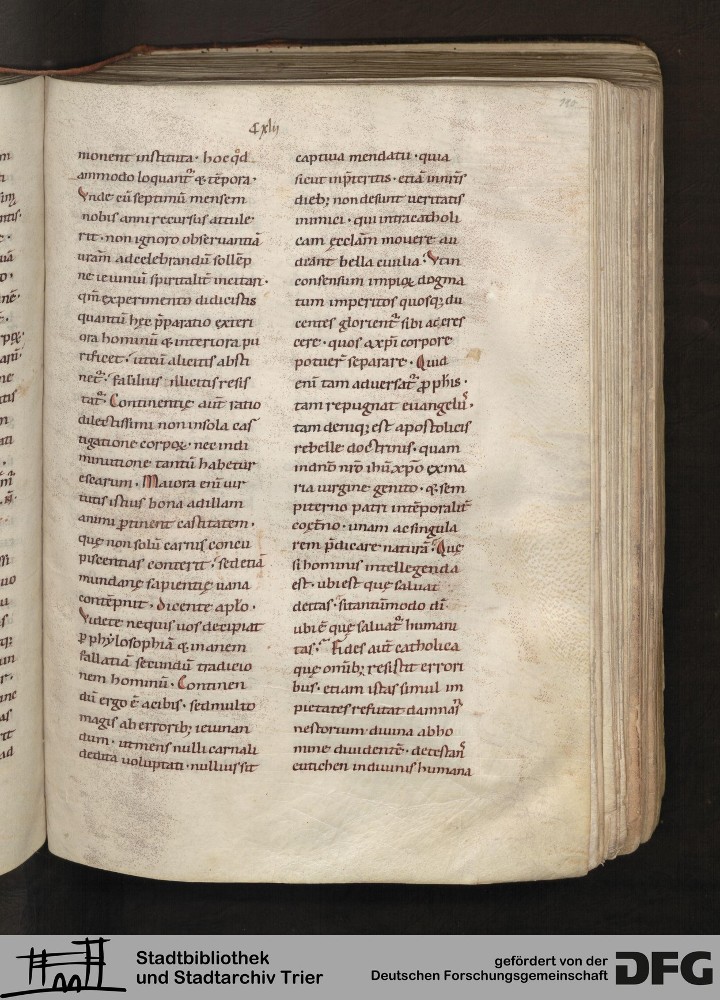 cxlij
monent instituta· hoc qđ
ammodo loquantᷣ & tēpora·
Vnde cū septimū mensem
nobis anni recursus attule
rit· non ignoro observantiā
urām ad celebrandū sollēp
ne ieiuniū spiritalit̄ incitari·
qm̄ experimento didicistis
quantū hęc p̄paratio exteri
ora hominū & interiora pu
rificet· ut cū a licitis absti
netᷣ· facilius illicitis resis
tatᷣ· Continentię aut̄ ratio
dilectissimi non in sola cas
tigatione corpoꝝ· nec in di
minutione tantū habetur
escarum· Maiora eni uir
tutis istius bona ad illam
animi ꝑtinent castitatem·
quę non solū carnis concu
piscentias conterit· sed etiā
mundanę sapientię uana
contēpnit· dicente apło·
Videte ne quis uos decipiat
ꝑ phylosophiā & inanem
fallatiā secundū traditio
nem hominū· Continen
dū ergo ē a cibis· sed multo
magis ab erroribꝫ ieiunan
dum· ut mens nulli carnali
dedita uoluptati· nullius sit
captiua mendatii· quia
sicut in p̄teritis· etiā in nr̄is
diebꝫ non desunt ueritatis
inimici· qui intra catholi
cam ęcclam̄ movere au
deant bella ciuilia· Vt in
consensum impioꝝ dogma
tum imperitos quosqꝫ du
centes glorientᷣ sibi ac cres
cere· quos a xp̄i corpore
potuer̄ separare· Quid
eni tam adversatᷣ ꝓphis·
tam repugnat euangeliis·
tam deniqꝫ est apostolicis
rebelle doctrinis· quam
in dn̄o nr̄o ihū xp̄o ex ma
ria uirgine genito· & sem
piterno patri intēporalit̄
coęt̄no· unam ac singula
rem p̄dicare naturā· Quę
si hominis intellegenda
est· ubi est quę saluat
deitas· si tantūmodo dī·
ubi ē quę saluatᷣ humani
tas· Fides aut̄ catholica
quę omībꝫ resistit errori
bus· etiam istas simul im
pietates refutat damnans
nestorium diuina ab ho
mine diuidentē· detestans
eutichen in diuinis humana
Stadtbibliothek
und Stadtarchiv Trier
gefördert von der
Deutschen Forschungsgemeinschaft
DFG